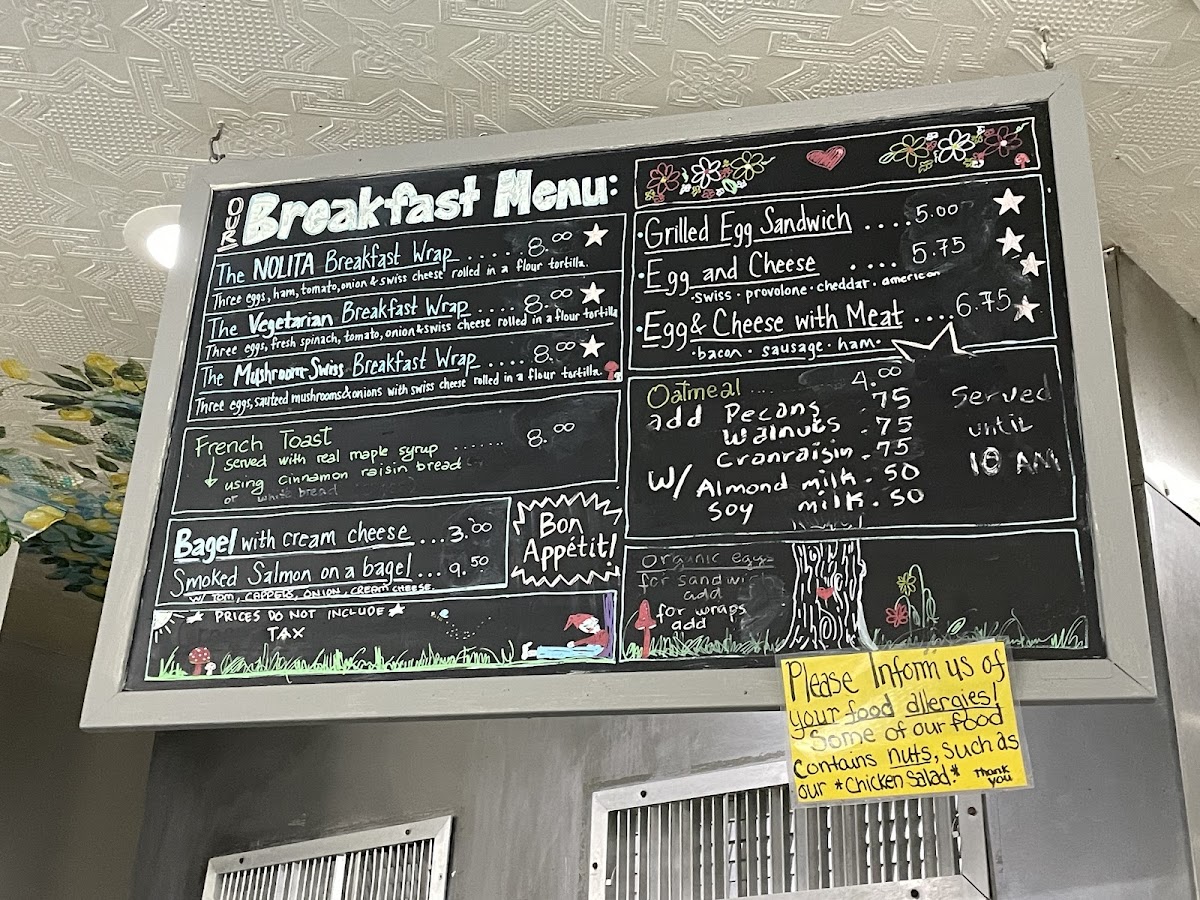 OUR Breakfast Menu:
The NOLITA Breakfast Wrap ..... 8.00
Three eggs, ham, tomato, onion & swiss cheese rolled in a flour tortilla.
The Vegetarian Breakfast Wrap ..... 8.00
Three eggs, fresh spinach, tomato, onion & swiss cheese rolled in a flour tortilla
The Mushroom-Swiss Breakfast Wrap ..... 8.00
Three eggs, sauteed mushrooms & onions with swiss cheese rolled in a flour tortilla.
French Toast ....... 8.00
served with real maple syrup
using cinnamon raisin bread
or white bread
Bagel with cream cheese ... 3.00
Smoked Salmon on a bagel ... 9.50
W/ TOM, CAPPERS, ONION, CREAM CHEESE.
Bon
Appétit!
PRICES DO NOT INCLUDE
TAX
· Grilled Egg Sandwich .... 5.00
· Egg and Cheese .... 5.75
· swiss · provolone · cheddar · american
· Egg & Cheese with Meat .... 6.75
· bacon · sausage · ham ·
Oatmeal ... 4.00
add Pecans 75
Walnuts .75
Cranraisin .75
W/ Almond milk .50
Soy milk .50
Served
until
10 AM
organic eggs
for sandwich
add
for wraps
add
Please Inform us of
your food allergies!
Some of our food
contains nuts, such as
our *Chicken Salad.*
Thank
you